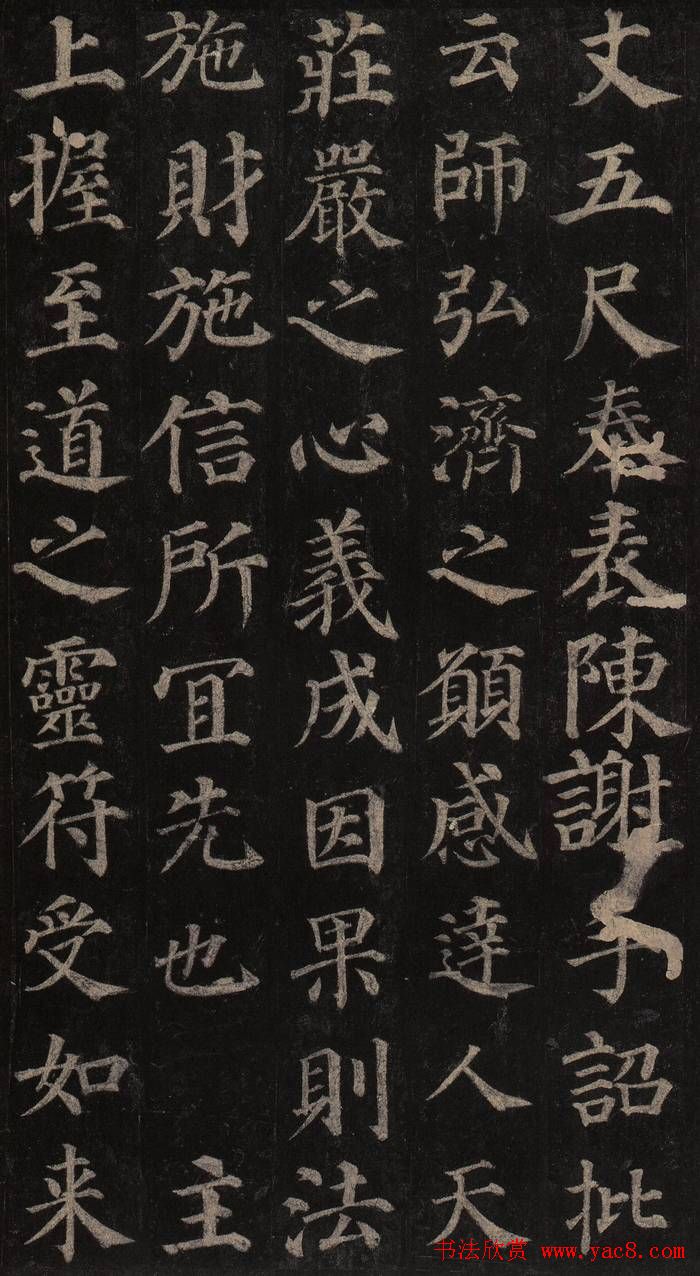 丈五尺奉表陳謝手詔批
云師弘濟之願感達人天
莊嚴之心義成因果則法
施財施信所冝先也　主
上握至道之靈符受如来
书法欣赏 www.yac8.com